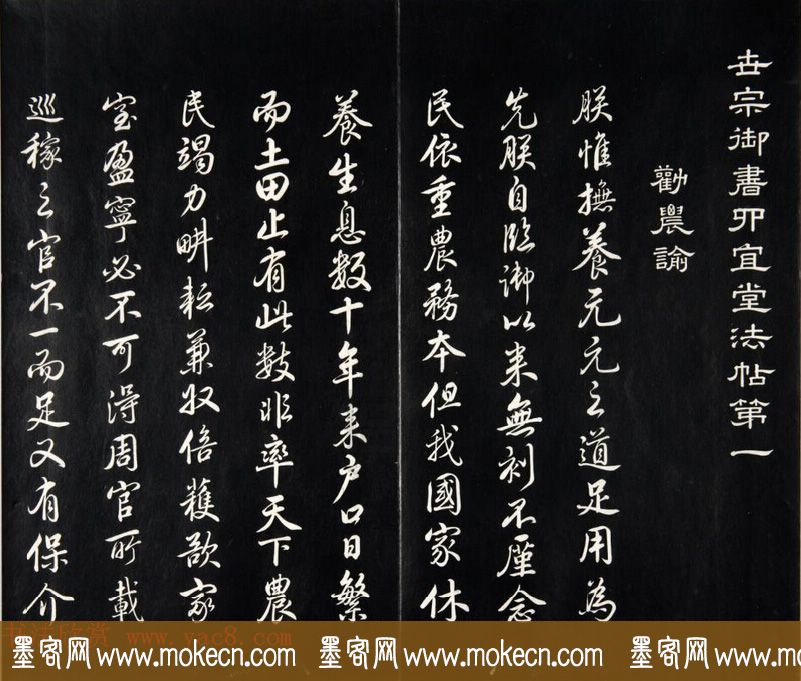 世宗御書四宜堂法帖第一
勸農諭
朕惟撫養元元之道足用為
先朕自臨御以來無刻不廑念
民依重農務本但我國家休
養生息數十年來戶口日繁
而土田止有此數非率天下農
民竭力畊耘兼收倍穫欲家
室盈寧必不可得周官所載
巡稼之官不一而足又有保介
书法欣赏 www.yac8.com
墨客网 www.mokecn.com 墨客网 www.mokecn.com 墨客网 www.mokecn.com